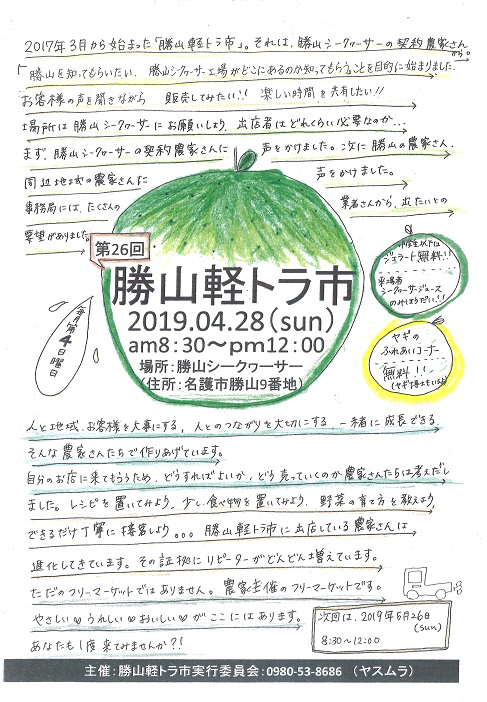 2017年3月から始まった「勝山軽トラ市」。それは、勝山シークヮーサーの契約農家さんから。
「勝山を知ってもらいたい、勝山シークヮーサー工場がどこにあるのか知ってもらうことを目的に始まりました。
お客様の声を聞きながら 販売してみたい!! 楽しい時間を共有したい!!
場所は勝山シークヮーサーにお願いしよう、出店者はどれくらい必要なのか...
まず、勝山シークヮーサーの契約農家さんに 声をかけました。次に勝山の農家さん、
周辺地域の農家さんに 声をかけました。
事務局には、たくさんの 業者さんから、出たいとの
要望がありました。
第26回
勝山軽トラ市
2019.04.28(sun)
am8:30〜pm12:00
場所:勝山シークヮーサー
(住所:名護市勝山9番地)
毎月第4日曜日
中学生以下は
ジェラート無料!!
来場者
シークヮーサージュース
のみほうだい!!
ヤギの
ふれあいコーナー
無料!!
人と地域、お客様を大事にする、人とのつながりを大切にする 一緒に成長できる
そんな農家さんたちで作りあげています。
自分のお店に来てもらうため、どうすればよいか、どう売っていくのか農家さんたちは考えだし
ました。レシピを置いてみよう、少し食べ物を置いてみよう、野菜の育て方を教えよう、
できるだけ丁寧に接客しよう。。。勝山軽トラ市に出店している農家さんは
進化してきています。その証拠にリピーターがどんどん増えています。
ただのフリーマーケットではありません。農家主催のフリーマーケットです。
やさしい♡うれしい♡おいしい♡がここにはあります。
あなたも1度来てみませんか?!
次回は、2019年5月26日
(sun)
8:30〜12:00
主催:勝山軽トラ市実行委員会:0980-53-8686 (ヤスムラ)